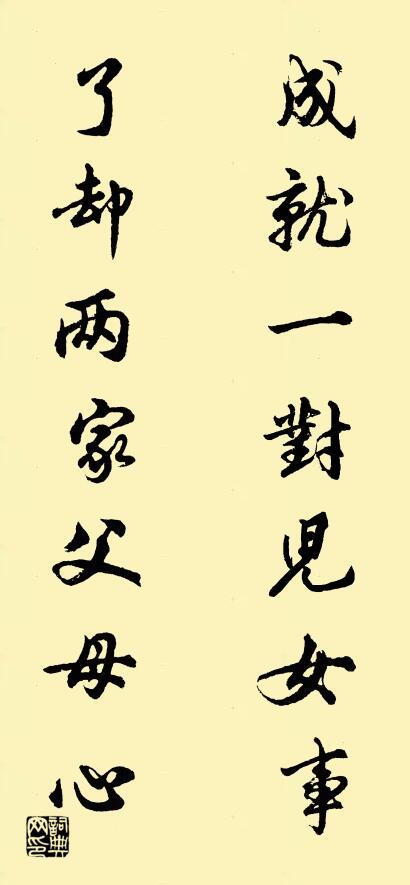 成就一對兒女事
了却两家父母心
詞典网印